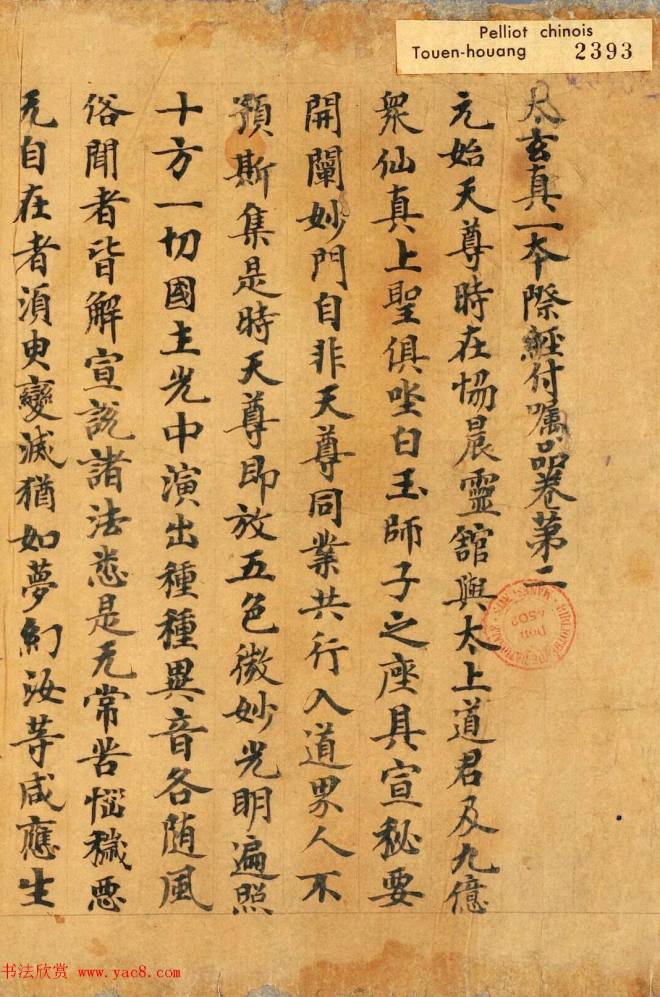 Pelliot chinois
Touen-houang 2393
太玄真一本際經付囑品卷第二
元始天尊時在協晨靈舘與太上道君及九億
衆仙真上聖俱坐白玉師子之座具宣秘要
開闡妙門自非天尊同業共行入道界人不
預斯集是時天尊即放五色微妙光明遍照
十方一切國土光中演出種種異音各随風
俗聞者皆解宣説諸法悉是无常苦惱穢惡
无自在者須臾變滅猶如夢幻汝等咸應生
书法欣赏 www.yac8.com